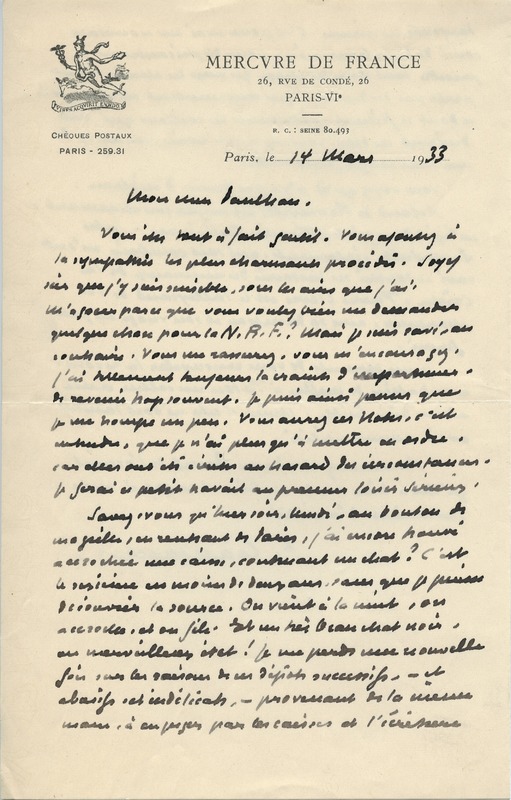 MERCVRE DE FRANCE
26, RVE DE CONDÉ, 26
PARIS-VIe
R. C. : SEINE 80.493
VIRES ACQVIRIT EVNDO
CHÈQUES POSTAUX
PARIS - 259.31
Paris, le 14 Mars 1933
Mon cher Paulhan.
Vous êtes tout à fait gentil. Vous ajoutez à
la sympathie les plus charmants procédés. Soyez
sûr que j'y suis sensible, sous les airs que j'ai.
M'agacer parce que vous voulez bien me demander
quelque chose pour la N. R. F.? Mais je suis ravi, au
contraire. Vous me rassurez, vous m'encouragez.
J'ai tellement toujours la crainte d'importuner.
de revenir trop souvent. Je puis ainsi penser que
je me trompe un peu. Vous aurez ces Notes, c'est
entendu, que je n'ai plus qu'à mettre en ordre,
car elles ont été écrites au hasard des circonstances.
Je ferai ce petit travail au premier loisir sérieux.
Savez-vous qu'hier soir, lundi, au bouton de
ma grille, en rentrant de Paris, j'ai encore trouvé
accrochée une caisse, contenant un chat? C'est
le sixième en moins de deux ans, sans que je puisse
découvrir la source. On vient à la nuit, on
accroche, et on file. Est un très beau chat noir,
en merveilleux état! Je me perds une nouvelle
fois sur les raisons de ces dépôts successifs, – et
abusifs et indélicats, – provenant de la même
main, à en juger par les caisses et l'écriture